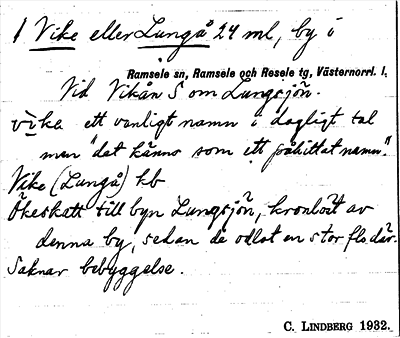 1 Vike eller Lungå 24 ml, by i
Ramsele sn, Ramsele och Resele tg, Västernorrl. l,
Vid Vikån S om Lungsjön.
vīka ett vanligt namn i dagligt tal
men "det känns som ett påhittat namn."
Vike (Lungå) kb
Ökeskatt till byn Lungsjön, kronlöst av
denna by, sedan de odlat en stor flo där.
Saknar bebyggelse.
C. LINDBERG 1932.